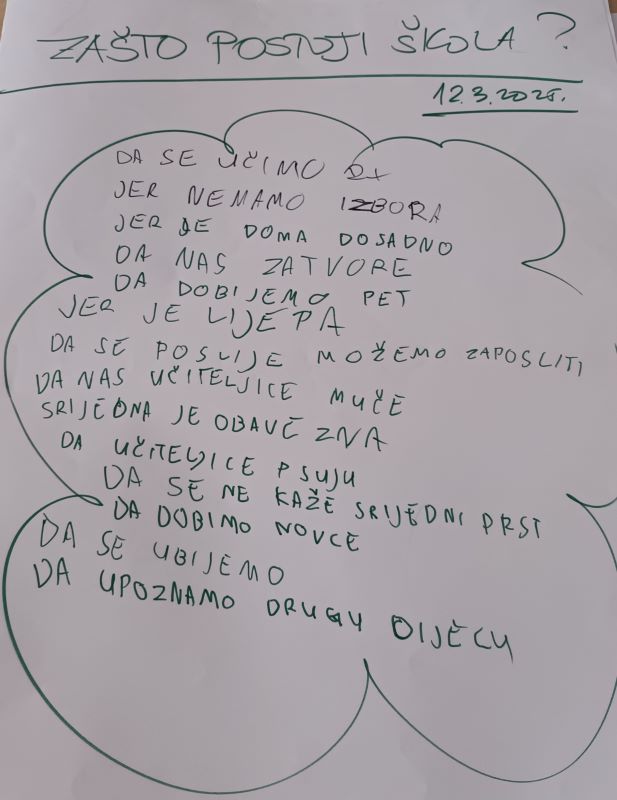 ZAŠTO POSTOJI ŠKOLA?
12.3.2025.
DA SE UČIMO
JER NEMAMO IZBORA
JER JE DOMA DOSADNO
DA NAS ZATVORE
DA DOBIJEMO PET
JER JE LIJEPA
DA SE POSLIJE MOŽEMO ZAPOSLITI
DA NAS UČITELJICE MUČE
SRIJEDNA JE OBAVEZNA
DA UČITELJICE PSUJU
DA SE NE KAŽE SRIJEDNI PRST
DA DOBIMO NOVCE
DA SE UBIJEMO
DA UPOZNAMO DRUGU DIJECU